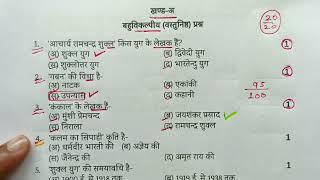 खण्ड-अ
बहुविकल्पीय (वस्तुनिष्ठ) प्रश्न
20
20
1. 'आचार्य रामचन्द्र शुक्ल' किस युग के लेखक हैं? 1
(अ) शुक्ल युग (ब) द्विवेदी युग
(स) शुक्लोत्तर युग (द) भारतेन्दु युग
2. 'गबन' की विधा है- 1
(अ) नाटक (ब) एकांकी
(स) उपन्यास (द) कहानी
95
100
3. 'कंकाल' के लेखक हैं- 1
(अ) मुंशी प्रेमचन्द (ब) जयशंकर प्रसाद
(स) निराला (द) रामचन्द्र शुक्ल
4. 'कलम का सिपाही' कृति है- 1
(अ) धर्मवीर भारती की (ब) अज्ञेय की
(स) जैनेन्द्र की (द) अमृत राय की
5. 'शुक्ल युग' की समयावधि है- 1